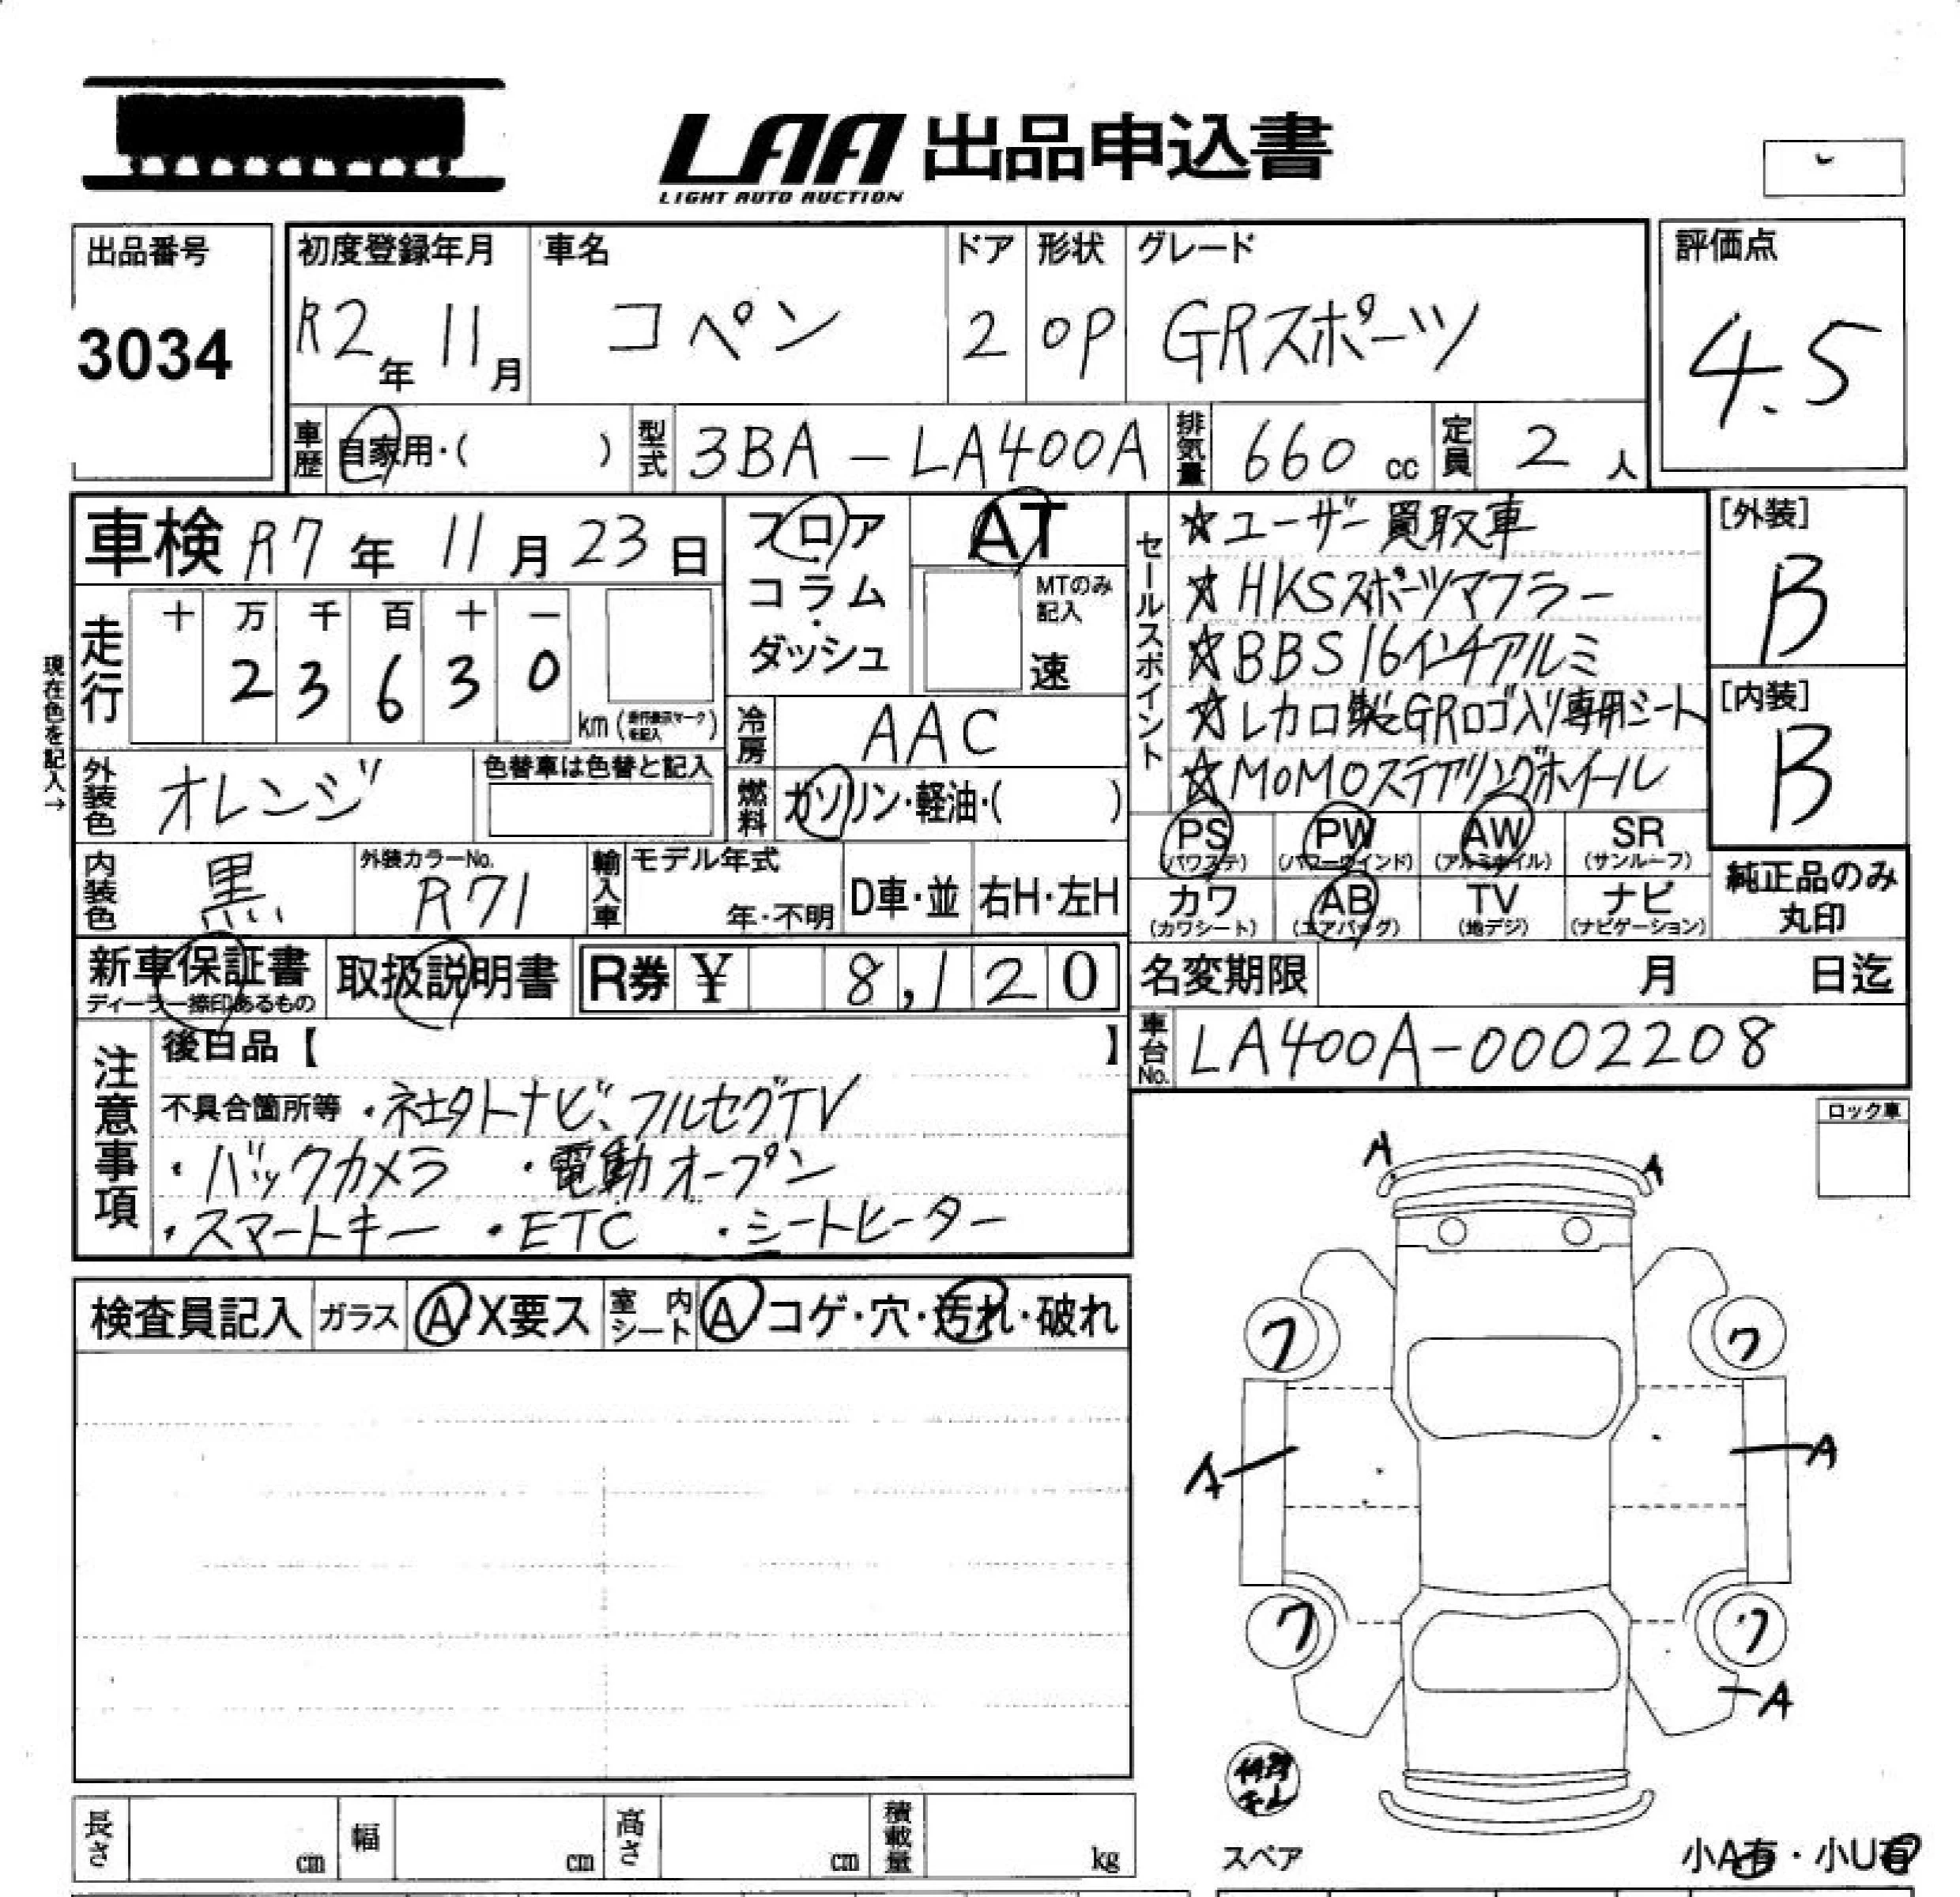 LAA 出品申込書
LIGHT AUTO AUCTION
出品番号
3034
初度登録年月
R2年 11月
車名
コペン
ドア
2
形状
OP
グレード
GRスポーツ
評価点
4.5
車歴 自家用・( )
型式 3BA-LA400A
排気量 660 cc
定員 2 人
車検 R7年 11月 23日
現在色を記入→
走行
十 万 千 百 十 一
2 3 6 3 0
km
フロア・コラム・ダッシュ
AT
MTのみ記入
速
冷房 AAC
燃料 ガソリン・軽油・( )
外装色 オレンジ
色替車は色替と記入
内装色 黒
外装カラーNo.
R71
輸入車
モデル年式
年・不明
D車・並
右H・左H
セールスポイント
☆ユーザー買取車
☆HKSスポーツマフラー
☆BBS16インチアルミ
☆レカロ製GRロゴ入り専用シート
☆MOMOステアリングホイール
[外装]
B
[内装]
B
PS PW AW SR
(パワステ) (パワーウインド) (アルミホイル) (サンルーフ)
カワ AB TV ナビ
(カワシート) (エアバッグ) (地デジ) (ナビゲーション)
純正品のみ
丸印
新車保証書
ディーラー捺印あるもの
取扱説明書
R券 ¥ 8,120
名変期限 月 日迄
車台No. LA400A-0002208
注意事項
後日品【 】
不具合箇所等 ・社外ナビ、フルセグTV
・バックカメラ ・電動オープン
・スマートキー ・ETC ・シートヒーター
ロック車
検査員記入 ガラス A・X要ス 室内シート A コゲ・穴・汚れ・破れ
A A
ワ ワ
A A
ワ ワ
A
スペア
小A有・小U有
長さ cm 幅 cm 高さ cm 積載量 kg